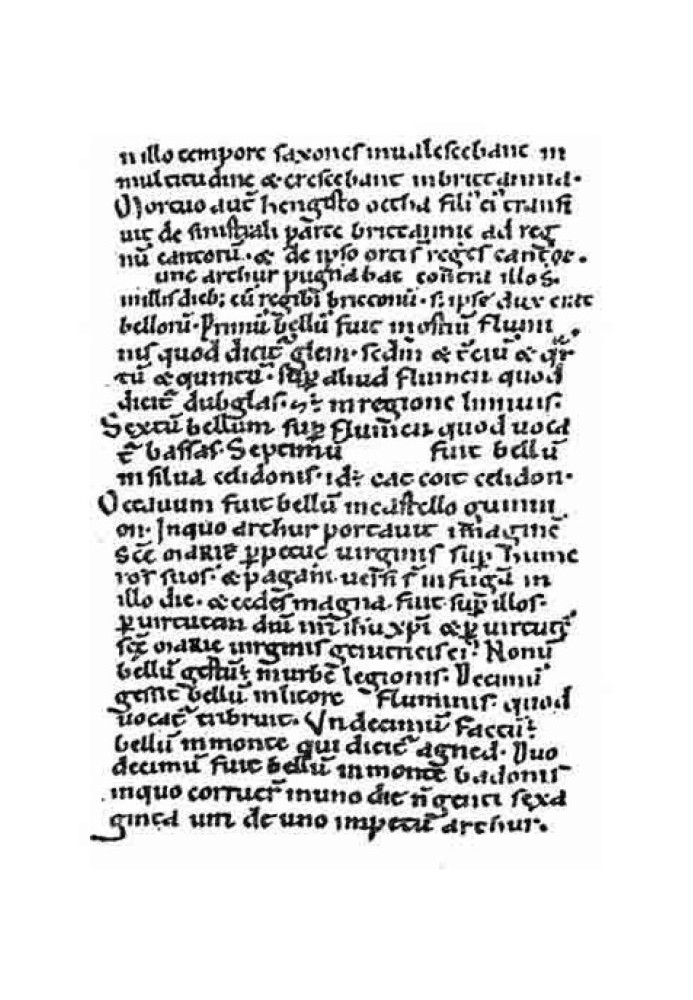 n illo tempore saxones inualescebant in
multitudine & crescebant in brittannia.
Mortuo aut̄ hengisto octha fili' ei' transi
uit de sinistrali parte brittannie ad reg
nū cantorū. & de ipso orti s̄ reges cantor.
unc arthur pugnabat contra illos.
in illis dieb; cū regibus brittonū. s; ipse dux erat
bellorū. Primū bellū fuit in ostiū flumi
nis quod dicit̄ glein. scdm̄ & t̄ciū & qr̄
tū & quintū. sup̄ aliud flumen quod
dicit̄ dubglas. & ē in regione linnuis.
Sextū bellum sup̄ flumen quod uoca
t̄ bassas. Septimū fuit bellū
in silua celidonis. id ē cat coit celidon.
Octauum fuit bellū in castello guinni
on. In quo arthur portauit imaginē
scē mariē p̄petuę uirginis sup̄ hume
ros suos. & pagani uersi s̄ in fugā in
illo die. & cedes magna fuit sup̄ illos.
p̄ uirtutem dnī nr̄i ih̄u xp̄i & p̄ uirtutē
scē mariē uirginis genitricis ei'. Nonū
bellū gestū ē in urbe legionis. Decimū
gessit bellū in litore fluminis. quod
uocat̄ tribruit. Undecimū factū ē
bellū in monte qui dicit̄ agned. Duo
decimū fuit bellū in monte badonis
in quo corruer̄ in uno die n̄genti sexa
ginta uiri de uno impetu arthur.